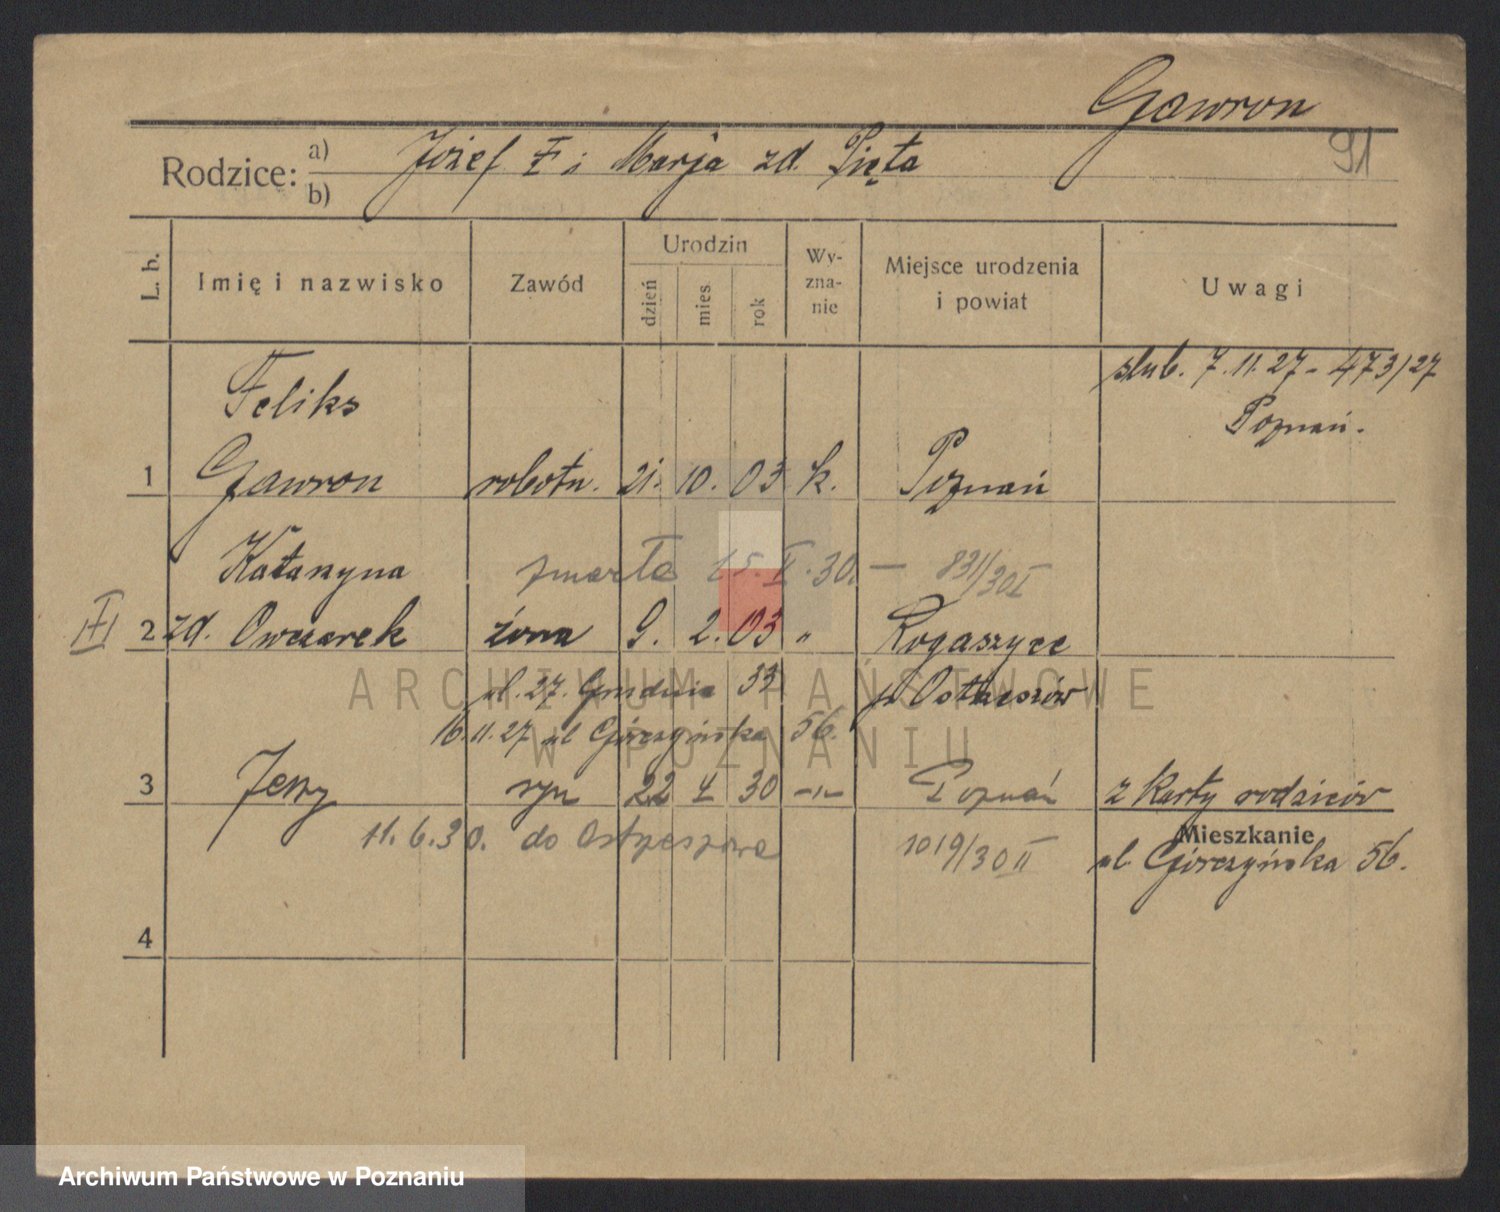 Gawron
91
Rodzice: a) Józef i Marja zd. Pięta
b)
L. b. Imię i nazwisko Zawód Urodzin dzień mies rok Wyznanie Miejsce urodzenia i powiat Uwagi
ślub. 7.11.27 - 473/27
Feliks Poznań.
1 Gawron robotn. 21. 10. 03 k. Poznań
Katarzyna zmarła 15. .30. — 831/30 I
2 zd. Owczarek żona 9. 2. 03 " Rogaszyce
ul. 27. Grudnia 33 p. Ostrzeszów
16.11.27 ul Górczyńska 56.
3 Jerzy syn 22 30 -"- Poznań z karty rodziców
11.6.30. do Ostrzeszowa 1019/30 II Mieszkanie
ul. Górczyńska 56.
4
ARCHIWUM PAŃSTWOWE
W POZNANIU
Archiwum Państwowe w Poznaniu